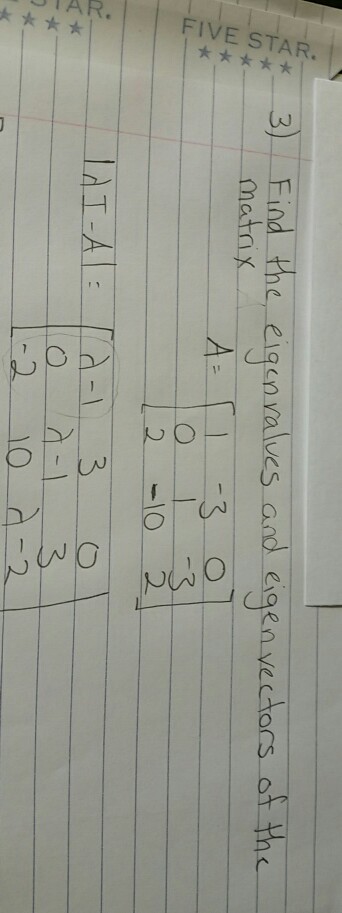 STAR.
FIVE STAR.
3) Find the eigenvalues and eigenvectors of the
matrix
A = [ 1 -3 0
0 1 -3
2 -10 2 ]
|λI-A| = [ λ-1 3 0
0 λ-1 3
-2 10 λ-2 ]